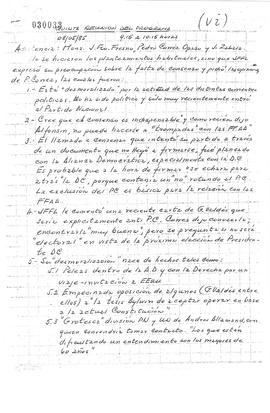 030033
(vi)
QUINTA REUNION DEL PROGRAMA
08/05/85 9:15 a 10:15 horas
Asistencia: Mons. J. Fco. Fresno, Pedro Correa Opaso y J. Zabala.
se hicieron los planteamientos habituales, sino que SFFL
expresó su preocupación sobre la falta de consenso y pidió
de P. Correa, las cuales fueron:
1.- Está "desmoralizado" por la actitud de los distintos
políticos. No ha sido político y sólo muy recientemente entró
al Partido Nacional.
2.- Cree que el consenso es indispensable y como recién dijo
Alfonsín, no puede hacerse a "trompadas" con las FFAA
3.- El llamado a consenso que intentó su partido a través
de un documento que no llegó a firmarse, fué planeado
con la Alianza Democrática, especialmente con la D.C
Es probable que a la hora de firmar se echara para
atrás la DC, porque contenía un no rotundo al P.C.
La exclusión del PC es básica para la relación con las
FFAA
4.- SFFL le comentó una reciente carta de G. Valdés que
sería explícitamente anti P.C. Correa dijo conocerla;
encontrarla "muy buena", pero se pregunta si no será
"electoral" en vista de la próxima elección de Presiden-
te DC
5.- Su desmoralización nace de hechos tales como:
5.1 Peleas dentro de la A.D y con la Derecha por un
viaje-invitación a EEUU
5.2 Empecinada oposición de algunos (G. Valdés entre
ellos) a la tesis Aylwin de aceptar operar en base
a la actual Constitución".
5.3 "Grotesca" división PN y UN de Andrés Allamand, con
quien convendría tomar contacto. "Los que están
dificultando un entendimiento son los mayores de
60 años"